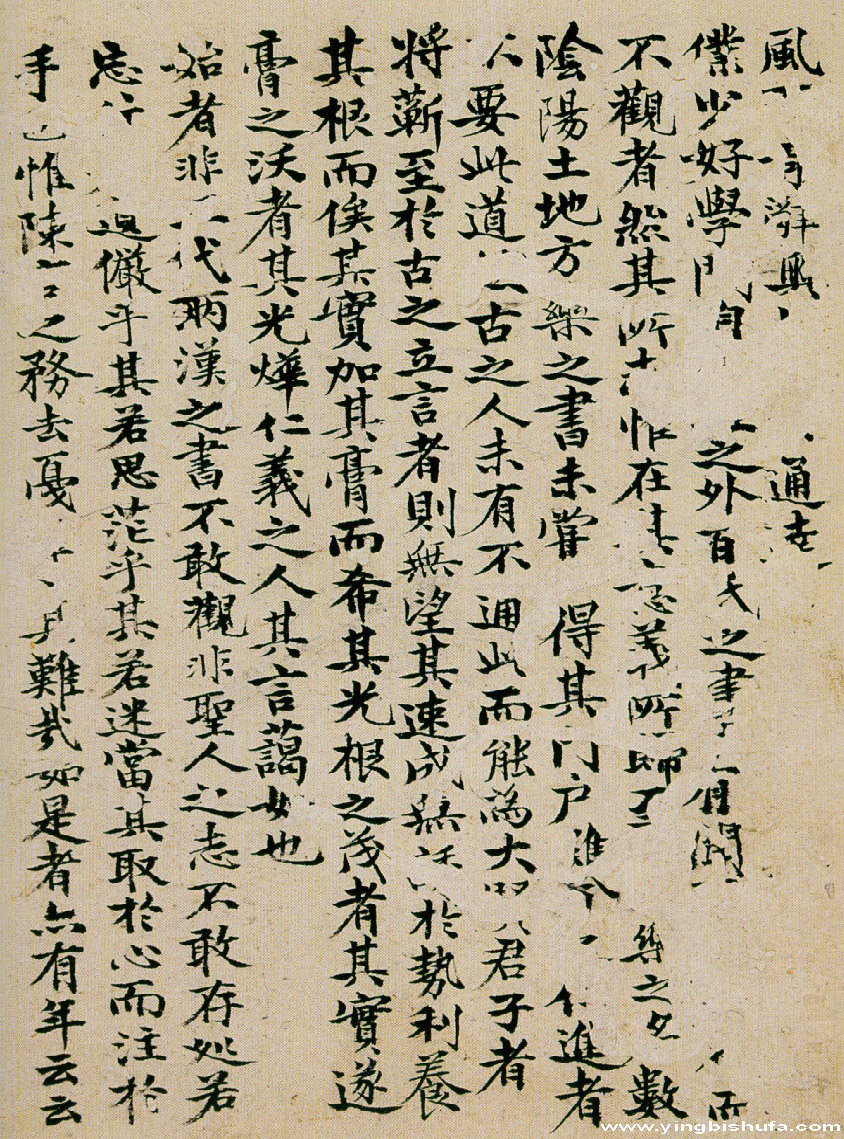 風 游興 通 
僕少好學問 之外百氏之書 聞而
不觀者然其所 惟在其意義所歸 樂之名數
陰陽土地方 樂之書未嘗 得其門户 進者
要此道 古之人未有不通此而能為大 君子者
將蘄至於古之立言者則無望其速成無 於勢利養
其根而俟其實加其膏而希其光根之茂者其實遂
膏之沃者其光燁仁義之人其言藹如也
始者非 代兩漢之書不敢觀非聖人之志不敢存處若
忘 儼乎其若思茫乎其若迷當其取於心而注於
手也惟陳言之務去戛 其難哉如是者亦有年云云
www.yingbishufa.com